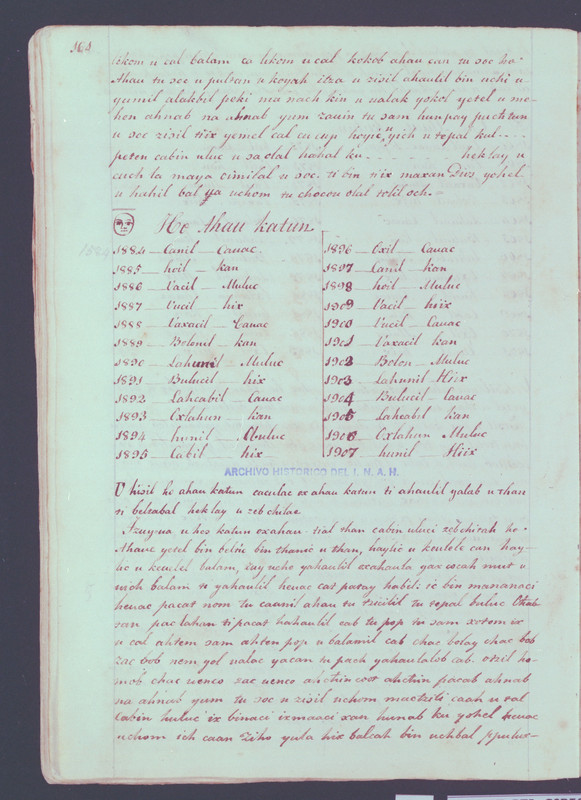 164
likom u cal balam co likom u cal kokob ahau can tu soc ho
Ahau tu soc u pulsan u koyah itza u zisil ahaulil bin uchi u
yumil alakbil peki ma nach kin u ualak yokol yetel u mo-
hen ahnab na ahnab yum zauin tu sam hunpay puchtun
u soc zisil tiix yemel cal cu cup koyic yich u tepal kul
peten cabin uluc u sa olal hahal ku heklay u
cuch la maya cimilal u soc. ti bin tix maxan Dios yohel
u hahil bal ya uchom tu chocou olal tolil och.
He Ahau katun
1884 Canil Cauac 1896 Oxil Cauac
1885 hoil kan 1897 Canil kan
1886 Uacil Muluc 1898 hoil Muluc
1887 Uucil hix 1909 Uacil hiix
1888 Uaxacil Cauac 1900 Uucil Cauac
1889 Bolonil kan 1901 Uaxacil kan
1890 Lahunil Muluc 1902 Bolon Muluc
1891 Bulucil hix 1903 Lahunil Hiix
1892 Lahcabil Cauac 1904 Bulucil Cauac
1893 Oxlahun kan 1905 Lahcabil kan
1894 hunil Muluc 1906 Oxlahun Muluc
1895 Cabil hix 1907 hunil Hiix
ARCHIVO HISTORICO DEL I. N. A. H.
U hisil he ahau katun caculac ox ahau katun ti ahaulil yalab u than
ti belzabal heklay u zeb chilac
u hes katun oxahau tial than cabin uluci zeb chirah ho
Ahaue yetel bin beltic bin thanic u than, haylic u keulele can hay
lic u keulel balam, zuy ucho yahaulil oxahaula yax cocah mut u
uich balam ti yahaulil heuac cat patay habil: ic bin mananaci
heuac pacat nom tu caanil ahau tu tzicilil tu tepal buluc Chab
tan pac lahun ti pacat hahaulil cab tu pop tu sam xotom ix
u cal ahtem sam ahten pop u balamil cab chac bolay chac bob
zac bob nem yol ualac yacan tu pach yahaulalob cab. otzil ho-
mob chac uenco sac uenco ahchuin coot ahchuin pacab ahnab
na ahnab yum tu soc u zisil uchom mactzili caah u ual
Cabin huluc ix binaci ixmaaci xan hunab ku yohel heuac
uchom ich caan Ziho yula hix balcah bin uchbal ppulux-